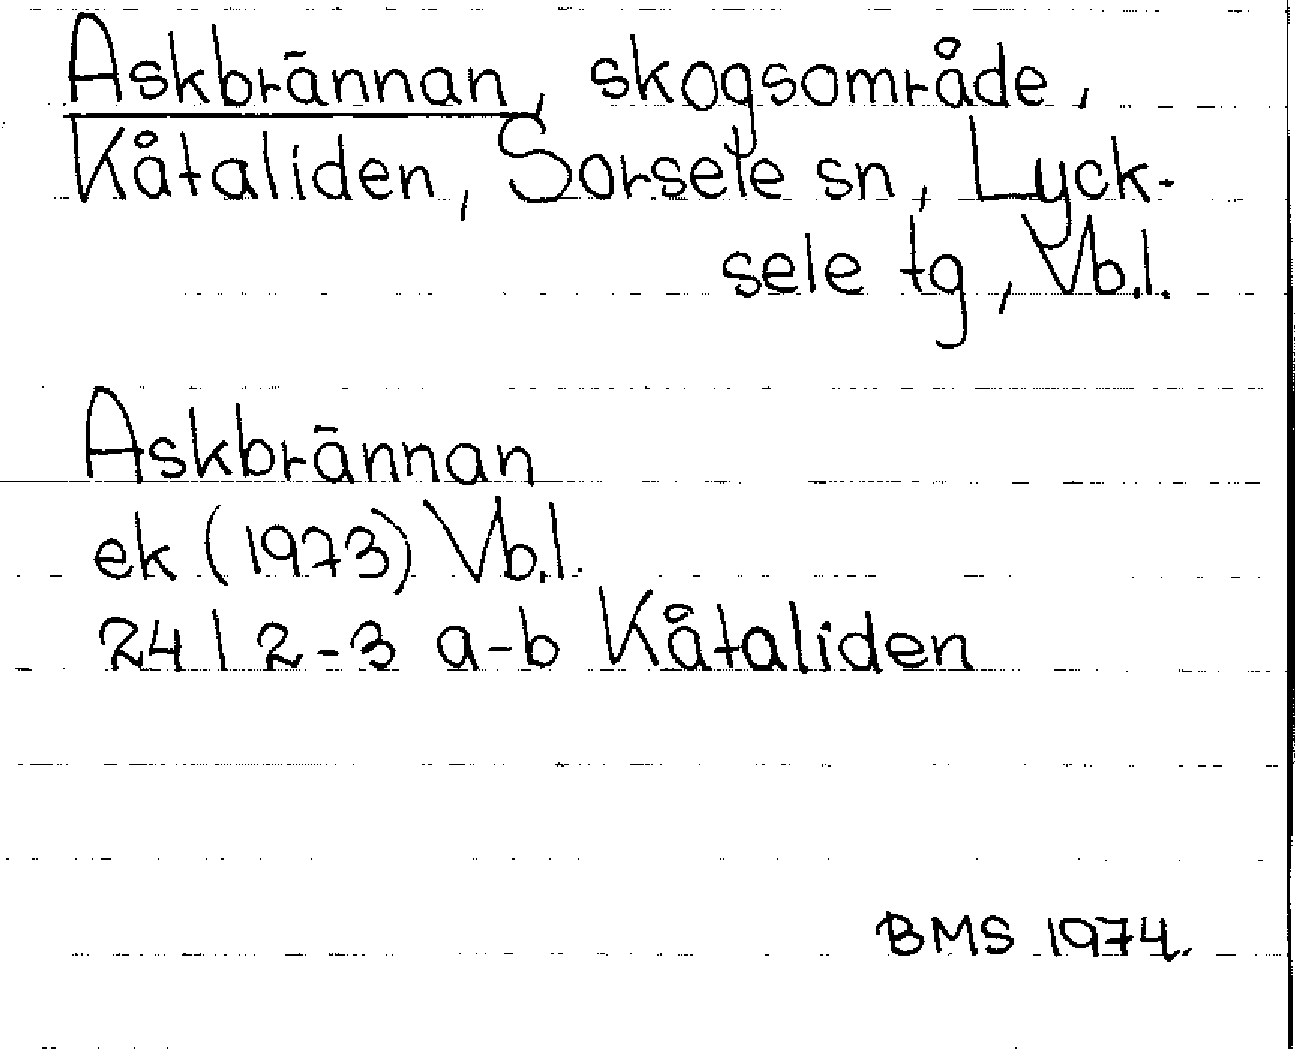 Askbrännan, skogsområde,
Kåtaliden, Sorsele sn, Lyck-
sele tg, Vb.l.
Askbrännan
ek (1973) Vb.l.
24 I 2-3 a-b Kåtaliden
BMS 1974.